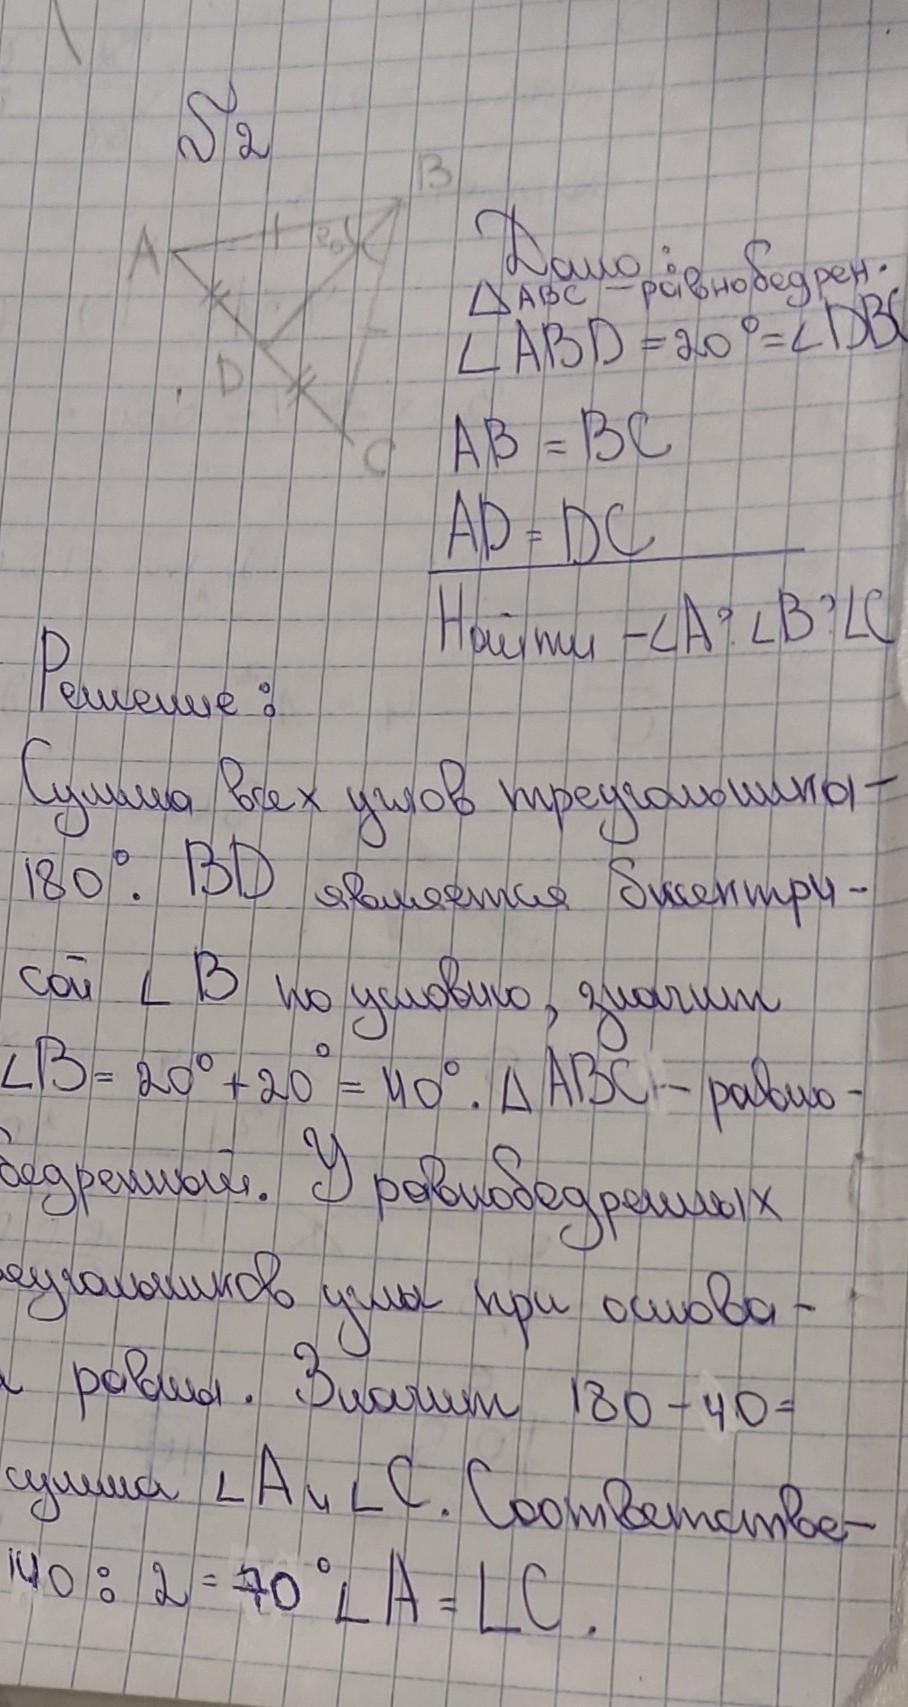 №2
B
A
20
D
C
Дано:
△ABC – равнобедрен.
∠ABD = 20° = ∠DBC
AB = BC
AD = DC
Найти – ∠A? ∠B? ∠C
Решение:
Сумма всех углов треугольника –
180°. BD является биссектри-
сой ∠B по условию, значит
∠B = 20° + 20° = 40°. △ABC – равно-
бедренный. У равнобедренных
еугольников углы при основа-
и равны. Значит 180 – 40 =
сумма ∠A и ∠C. Соответстве-
140 : 2 = 70° ∠A = ∠C.